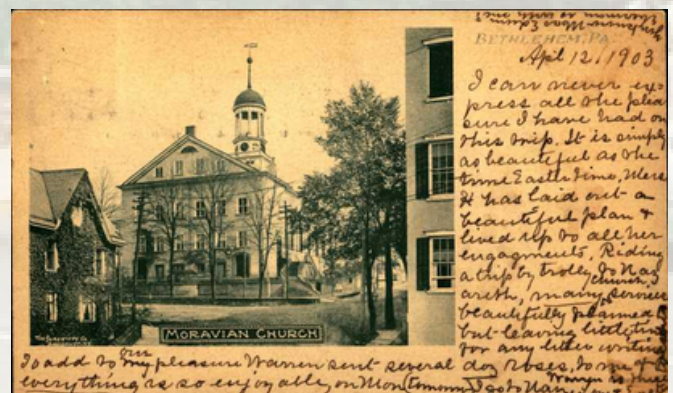 BETHLEHEM, PA.
Apl 12, 1903
I can never ex-
press all the plea
sure I have had on
this trip. It is simply
as beautiful as the
time Easter time, Mere
H has laid out a
beautiful plan &
lived up to all her
engagments, Riding
a trip by trolly to Naz
areth, many church services
beautifully planned
but leaving little time
for any letter writing
To add to our my pleasure Warren sent several doz roses, to me &
everything is so enjoyable, on Mon tomorrow I go to Naz
MORAVIAN CHURCH